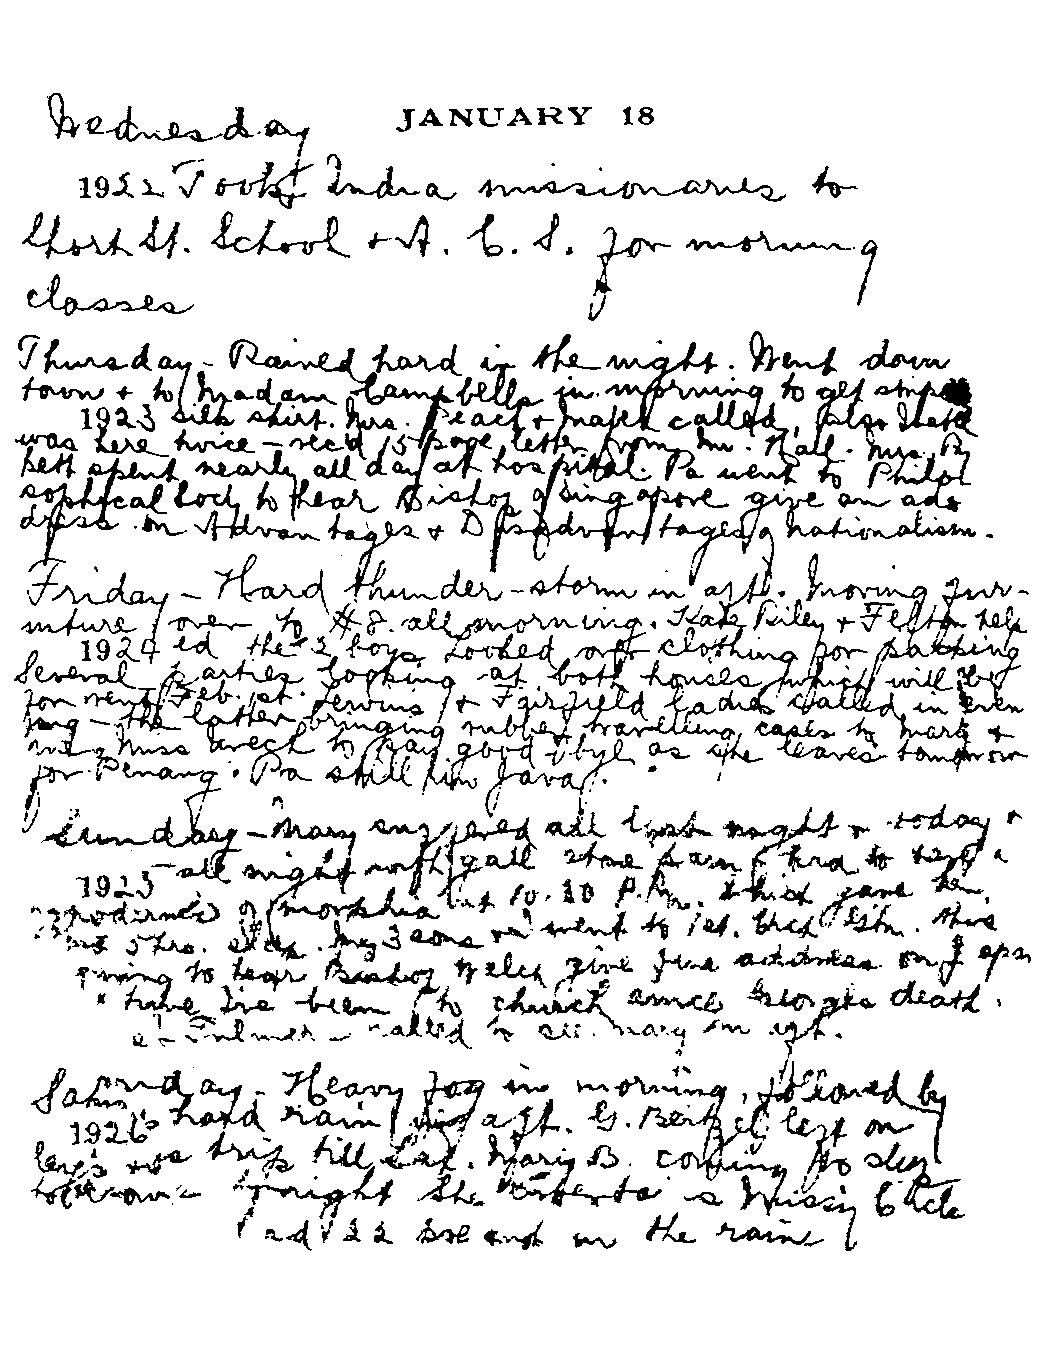 Wednesday JANUARY 18
1922 Took India missionaries to
Short St. School & A. C. S. for morning
classes
Thursday - Rained hard in the night. Went down
town & to Madam Campbells in morning to get stripe
1923 silk shirt. Mrs. Peach & Mabel called, also
was here twice - rec'd 15 page letter from Mr. Hall. Mrs.
bett spent nearly all day at hospital. Pa went to Philo
sophical Socty to hear Bishop of Singapore give an ad-
dress on Advantages & Disadvantages of nationalism.
Friday - Hard thunder-storm in aft. Moving fur-
niture over to #8. all morning. Kate Riley & Felton help
1924 ed the 3 boys. Looked over clothing for packing
Several parties looking at both houses which will be
for rent Feb. 1st. & Fairfield ladies called in even
ing - the latter bringing rubber travelling cases to Mary &
me. Miss Urech to say good-bye as she leaves tomorrow
for Penang. Pa still in Java.
Sunday - Mary suffered all last night & today &
1925 - all night with gall stone pain & had to take a
of morphia at 10.30 P.M. which gave her
5 hrs. sleep. My 3 sons went to 1st. Ch. this
evening to hear Bishop Welch give fine address on Japan
" time I've been to church since George's death.
Fulmer called to see Mary in aft.
Monday - Heavy fog in morning, followed by
1926 hard rain in aft. G. Bertzel left on
trip till Sat. Mary B. coming to sleep
tonight She & Missy Circle
ad 22 present in the rain